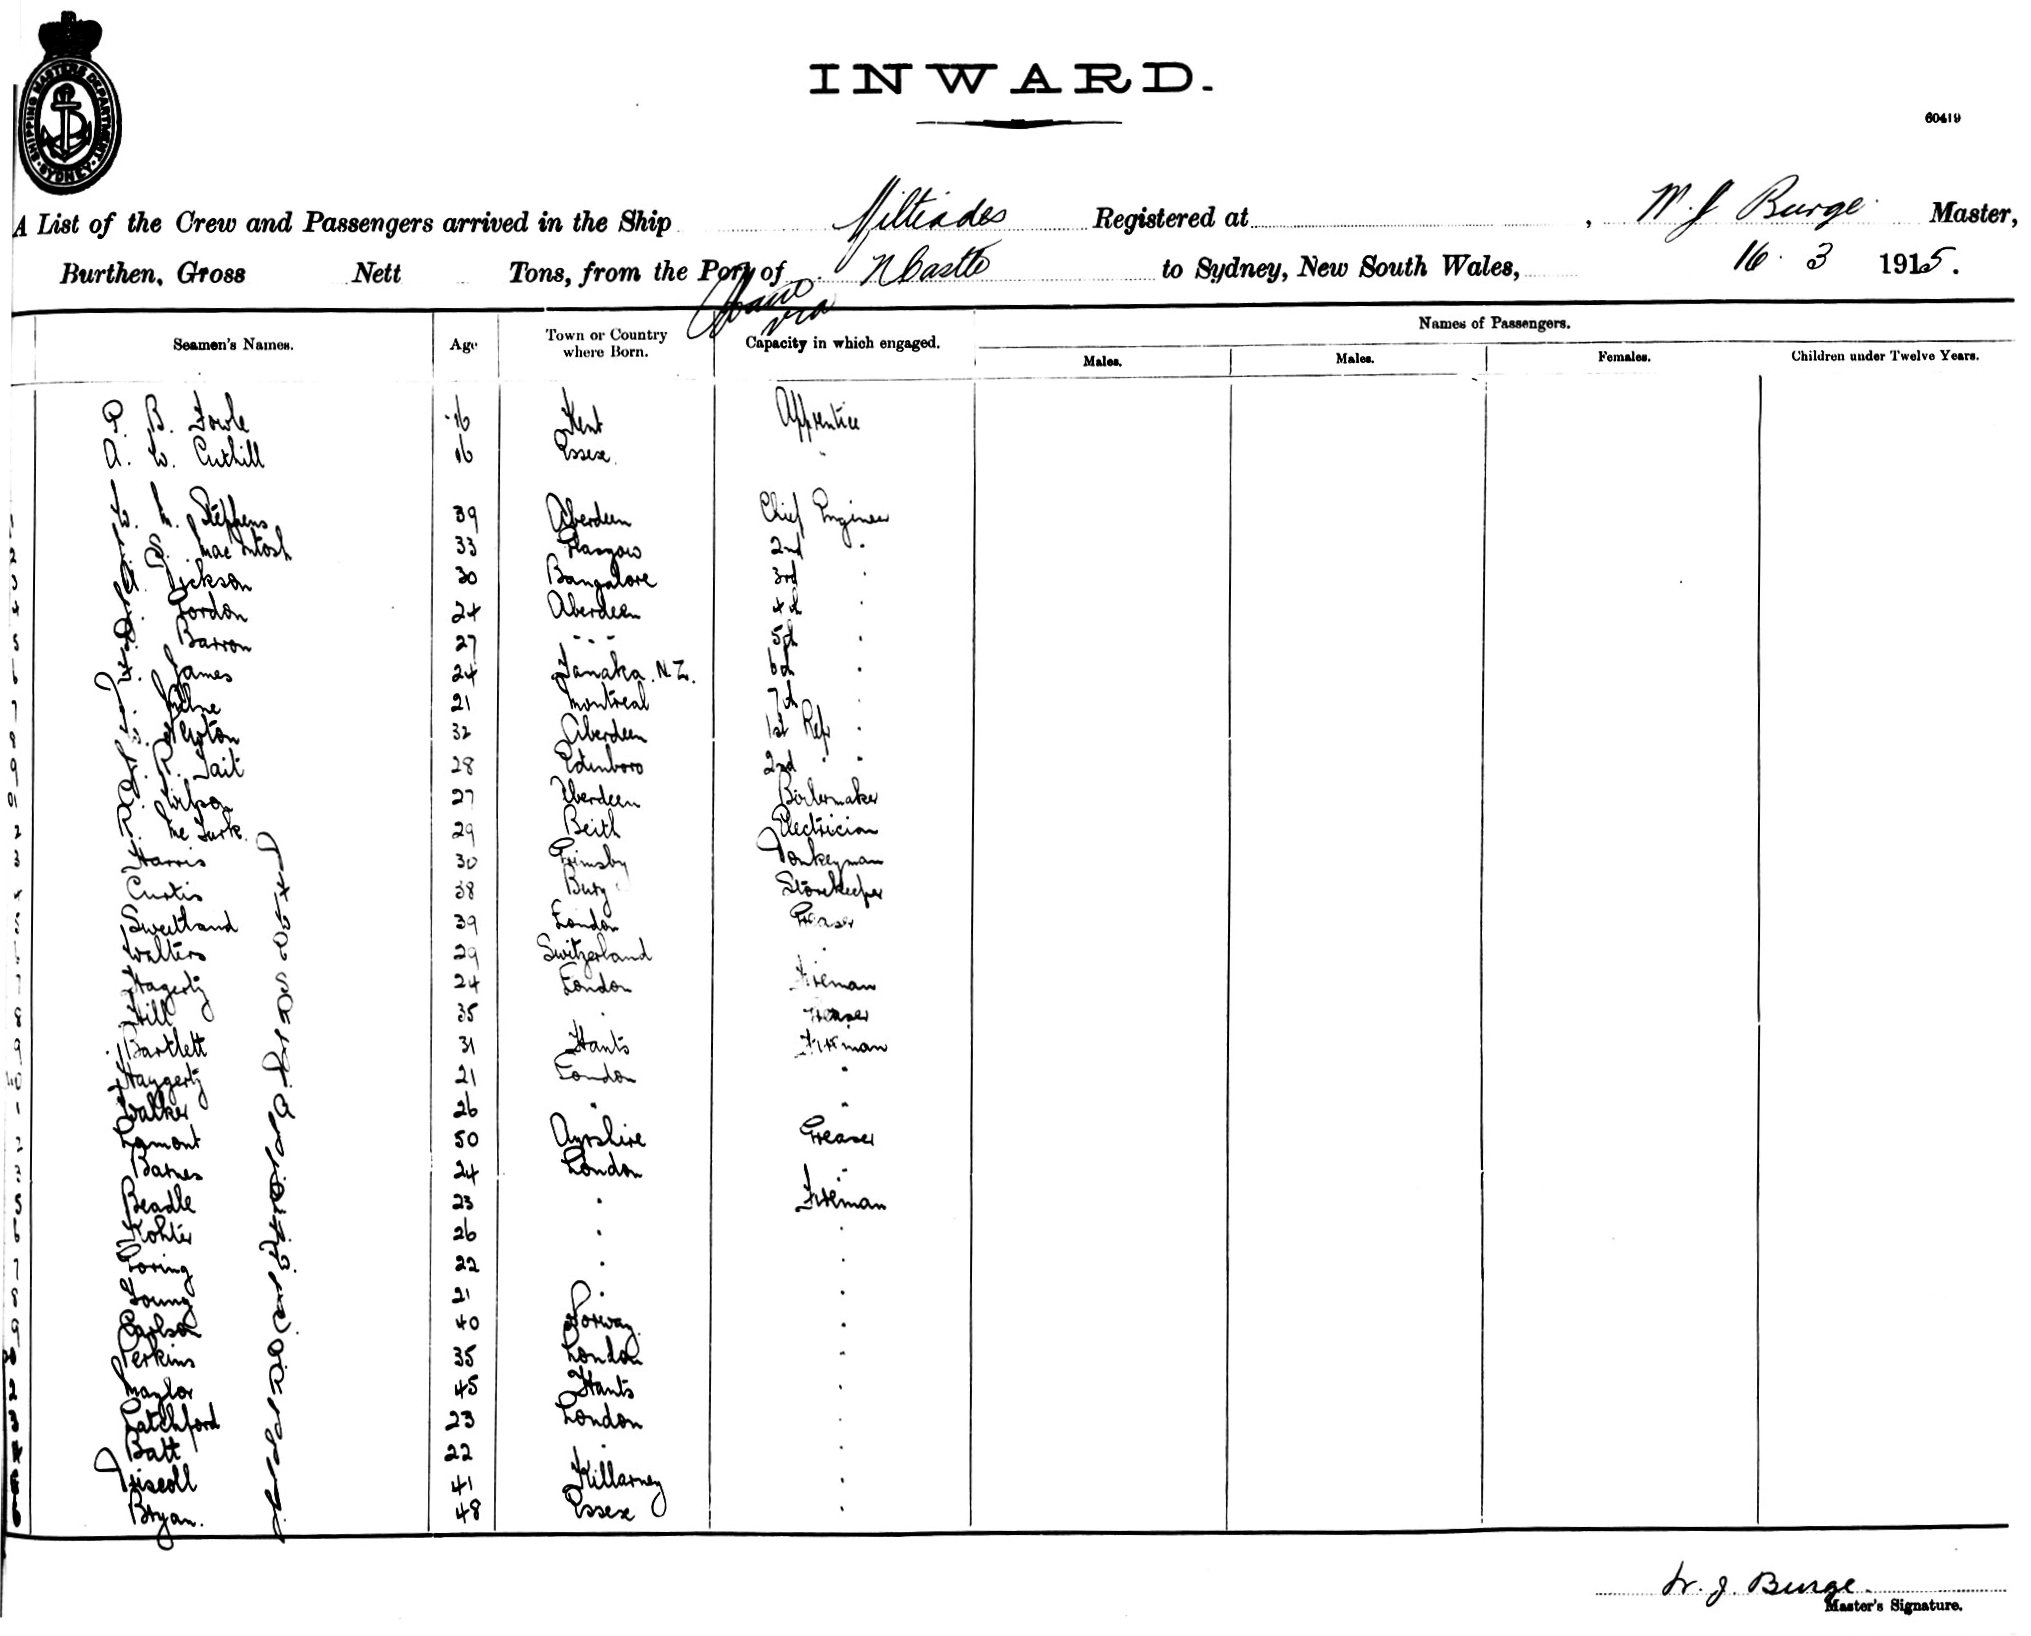 SHIPPING MASTERS DEPARTMENT
SYDNEY
INWARD.
60419
A List of the Crew and Passengers arrived in the Ship Miltiades Registered at , W. J Burge Master,
Burthen, Gross Nett Tons, from the Port of N Castle to Sydney, New South Wales, 16. 3 1915.
via
Names of Passengers.
Seamen's Names. Age Town or Country where Born. Capacity in which engaged. Males. Males. Females. Children under Twelve Years.
B. Fowle 16 Kent Apprentice
A. W. Cuthill 16 Essex "
M. Stephens 39 Aberdeen Chief Engineer
S. MacIntosh 33 Glasgow 2nd "
Dickson 30 Bangalore 3rd "
Gordon 24 Aberdeen 4th "
Barron 27 " " " 5th "
James 24 Tanaka N.Z. 6th "
Milne 21 Montreal 7th "
Newton 32 Aberdeen 1st Refr "
R. Tait 28 Edinboro 2nd " "
Wilson 27 Aberdeen Boilermaker
Mc Turk 29 Beith Electrician
Harris 30 Grimsby Donkeyman
Curtis 38 Bury Storekeeper
Sweetland 39 London Greaser
Walters 29 Switzerland "
Hagerty 24 London Fireman
Hill 35 " Greaser
Bartlett 31 Hants Fireman
Haggerty 21 London "
Walker 26 " "
Lamont 50 Ayrshire Greaser
Barnes 24 London "
Beadle 23 " Fireman
Kohler 26 " "
Goring 22 " "
Young 21 " "
Carlson 40 Norway "
Perkins 35 London "
Naylor 45 Hants "
Latchford 23 London "
Batt 22 " "
Driscoll 41 Killarney "
Bryan. 48 Essex "
W. J. Burge.
Master's Signature.